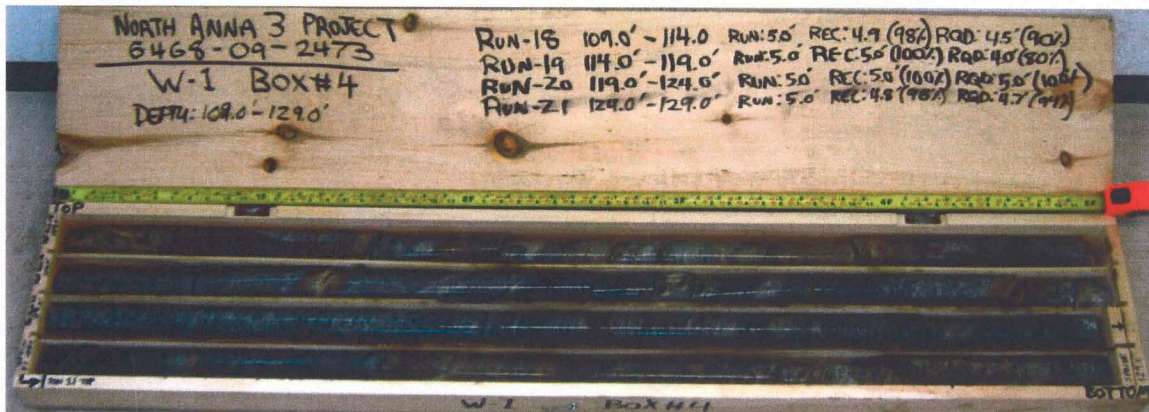 NORTH ANNA 3 PROJECT
6468-09-2473
W-1 BOX#4
DEPTH: 109.0'-129.0'
RUN-18 109.0'-114.0 RUN: 5.0' REC: 4.9 (98%) RQD: 4.5' (90%)
RUN-19 114.0'-119.0' RUN: 5.0' REC: 5.0' (100%) RQD: 4.0' (80%)
RUN-20 119.0'-124.0' RUN: 5.0' REC: 5.0' (100%) RQD: 5.0' (100%)
RUN-21 124.0'-129.0' RUN: 5.0' REC: 4.8 (96%) RQD: 4.7' (94%)
TOP
BOTTOM
W-1 BOX#4